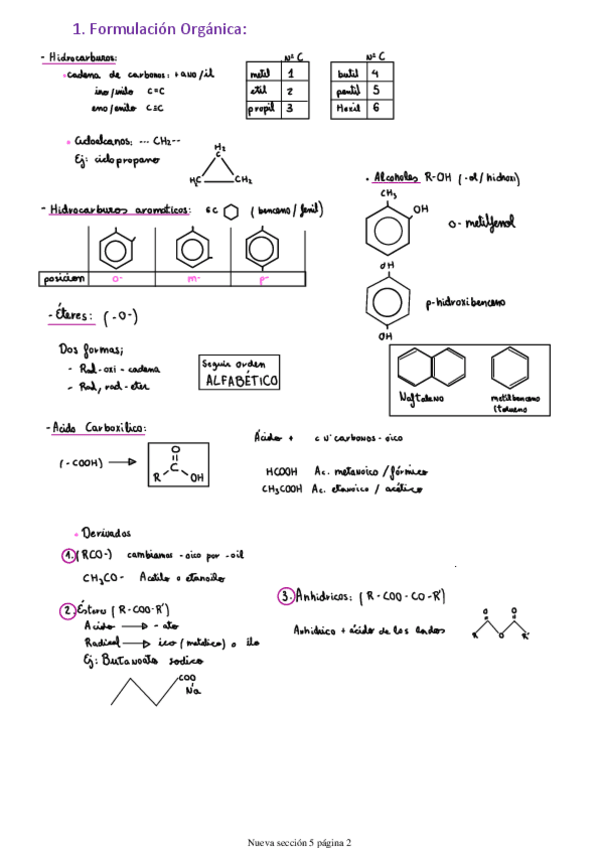 1. Formulación Orgánica:
- Hidrocarburos:
• cadena de carbonos: + ano/il
ino/inilo C=C
eno/enilo C≡C
Nº C
metil 1
etil 2
propil 3
Nº C
butil 4
pentil 5
Hexil 6
• Cicloalcanos: ... CH2--
Ej: ciclo propano
H2
C
H2C CH2
• Alcoholes R-OH (-ol / hidroxi)
CH3
OH
o- metilfenol
- Hidrocarburos aromáticos: 6C (benceno / fenil)
posición o- m- p-
OH
OH
p-hidroxibenceno
- Éteres: (-O-)
Dos formas;
- Rad-oxi - cadena
- Rad, rad-eter
Seguir orden
ALFABÉTICO
Naftaleno
metilbenceno
(tolueno
- Acido Carboxilico:
(-COOH)
O
R C OH
Ácido + c Nº carbonos - oico
HCOOH Ac. metanoico / fórmico
CH3COOH Ac. etanoico / acético
• Derivados
1. (RCO-) cambiamos -oico por -oil
CH3CO- Acetilo o etanoilo
2. Ésteres (R-COO-R')
Acido - ato
Radical ico (metálico) o ilo
Ej: Butanoato sodico
COO
Na
3. Anhidricos: (R-COO-CO-R')
Anhidrico + ácido de los lados
O O
R O R'
Nueva sección 5 página 2